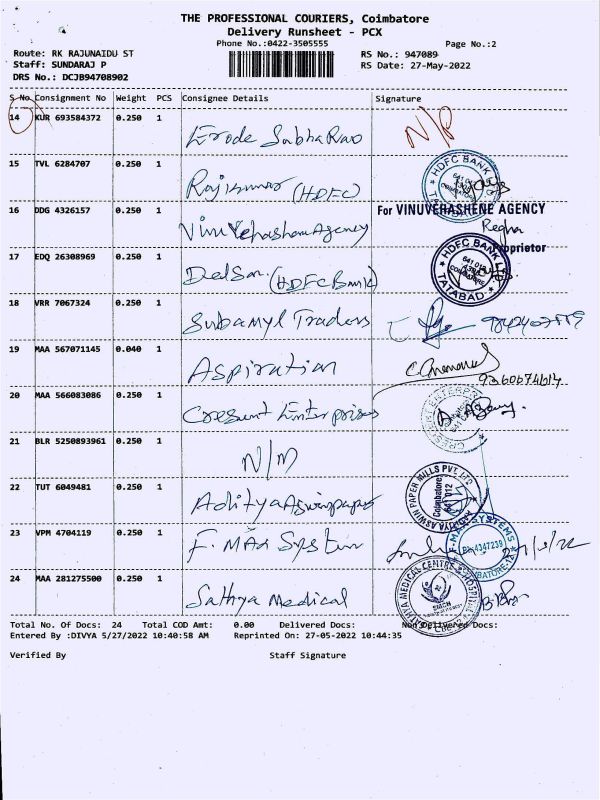 THE PROFESSIONAL COURIERS, Coimbatore
Delivery Runsheet - PCX
Phone No.:0422-3505555
Page No.:2
Route: RK RAJUNAIDU ST
RS No.: 947089
Staff: SUNDARAJ P
RS Date: 27-May-2022
DRS No.: DCJB94708902
S No Consignment No Weight PCS Consignee Details Signature
14 KUR 693584372 0.250 1 Erode Sabha Rao N/P
15 TVL 6284707 0.250 1 Rajkumar (HDFC) HDFC BANK TATABAD
16 DDG 4326157 0.250 1 Vinuvehashene Agency For VINUVEHASHENE AGENCY
Regha
Proprietor
17 EDQ 26308969 0.250 1 Delson (HDFC Bank) HDFC BANK LTD TATABAD
18 VRR 7067324 0.250 1 Subamyl Traders
19 MAA 567071145 0.040 1 Aspiration 9360674614
20 MAA 566083086 0.250 1 Cresent Enterprises
21 BLR 5250893961 0.250 1 N/M
22 TUT 6049481 0.250 1 Aditya Aswin paper ADITYA ASWIN PAPER MILLS PVT LTD Coimbatore 641 012
23 VPM 4704119 0.250 1 F. MAX System F-MAX SYSTEMS Ph:4347239 COIMBATORE-12
24 MAA 281275500 0.250 1 Sathya Medical SATHYA MEDICAL CENTRE & HOSPITAL SMCH CBE-12
Total No. Of Docs: 24 Total COD Amt: 0.00 Delivered Docs: Non Delivered Docs:
Entered By :DIVYA 5/27/2022 10:40:58 AM Reprinted On: 27-05-2022 10:44:35
Verified By Staff Signature